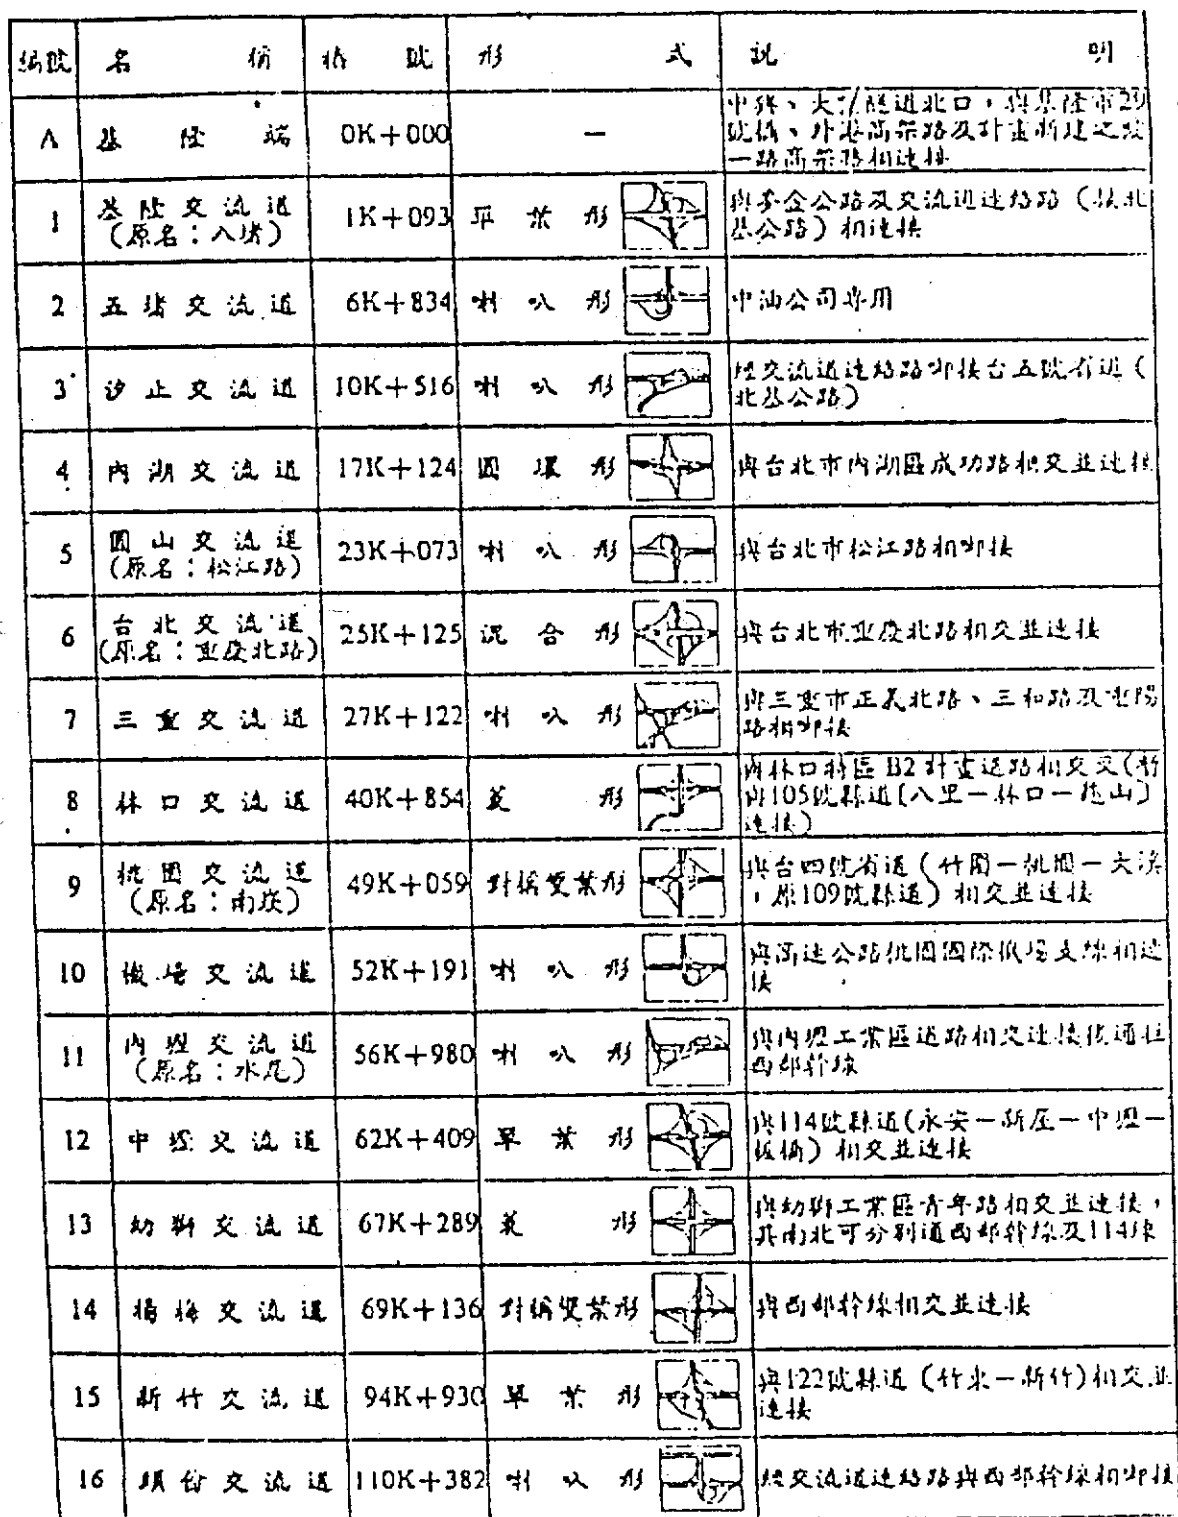 編號 名稱 樁號 形式 說明
A 基隆端 0K+000 — 中興、大業隧道北口,與基隆市29
號橋、外港高架路及計畫新建之
一路高架路相連接
1 基隆交流道 1K+093 單葉形 與麥金公路及交流道連絡路(接北
(原名:八堵) 基公路)相連接
2 五堵交流道 6K+834 喇叭形 中油公司專用
3 汐止交流道 10K+516 喇叭形 經交流道連絡路啣接台五號省道(
北基公路)
4 內湖交流道 17K+124 圓環形 與台北市內湖區成功路相交並連接
5 圓山交流道 23K+073 喇叭形 與台北市松江路相啣接
(原名:松江路)
6 台北交流道 25K+125 混合形 與台北市重慶北路相交並連接
(原名:重慶北路)
7 三重交流道 27K+122 喇叭形 與三重市正義北路、三和路及重陽
路相啣接
8 林口交流道 40K+854 菱形 與林口特區B2計畫道路相交叉(暫
與105號縣道〔八里—林口—龜山〕
連接)
9 桃園交流道 49K+059 對稱雙葉形 與台四號省道(竹圍—桃園—大溪
(原名:南崁) ,原109號縣道)相交並連接
10 機場交流道 52K+191 喇叭形 與高速公路桃園國際機場支線相連
接
11 內壢交流道 56K+980 喇叭形 與內壢工業區道路相交連接後通往
(原名:水尾) 西部幹線
12 中壢交流道 62K+409 單葉形 與114號縣道(永安—新屋—中壢—
板橋)相交並連接
13 幼獅交流道 67K+289 菱形 與幼獅工業區青年路相交並連接,
其南北可分別通西部幹線及114線
14 楊梅交流道 69K+136 對稱雙葉形 與西部幹線相交並連接
15 新竹交流道 94K+930 單葉形 與122號縣道(竹東—新竹)相交並
連接
16 頭份交流道 110K+382 喇叭形 經交流道連絡路與西部幹線相啣接